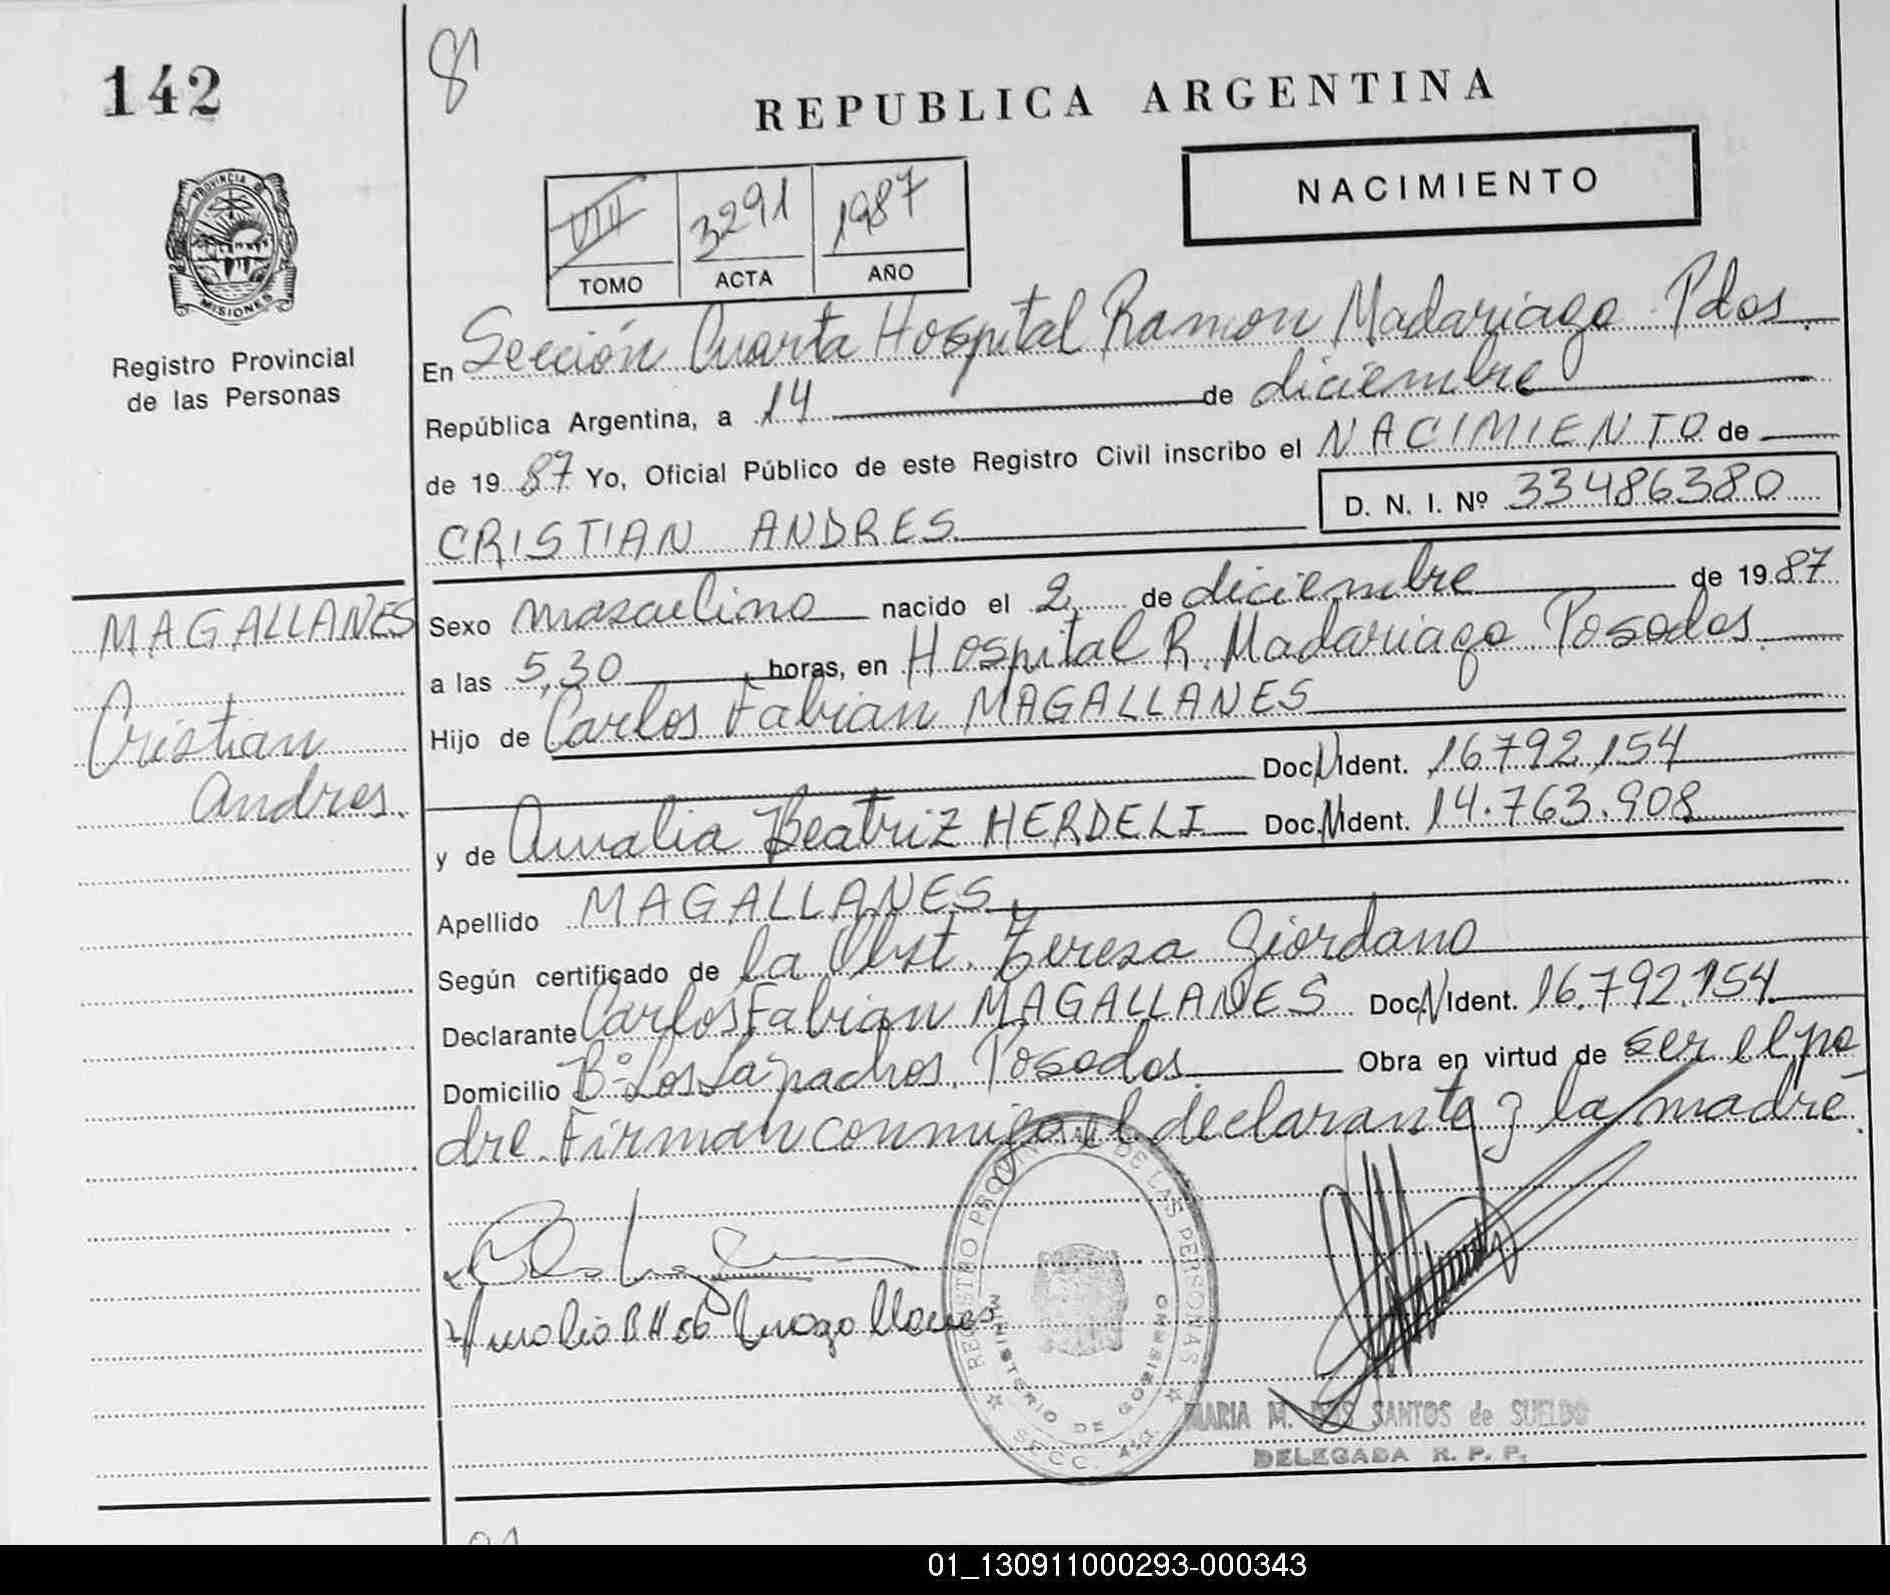 142
8
REPUBLICA ARGENTINA
NACIMIENTO
VIII 3291 1987
TOMO ACTA AÑO
PROVINCIA DE MISIONES
Registro Provincial
de las Personas
En Sección Cuarta Hospital Ramon Madariaga Pdas.
República Argentina, a 14 de diciembre
de 1987 Yo, Oficial Público de este Registro Civil inscribo el NACIMIENTO de
D. N. I. Nº 33486380
CRISTIAN ANDRES
MAGALLANES
Cristian
Andres.
Sexo masculino nacido el 2 de diciembre de 1987
a las 5,30 horas, en Hospital R. Madariaga Posadas.
Hijo de Carlos Fabian MAGALLANES
Doc. N Ident. 16792,154
y de Amalia Beatriz HERDELI Doc. N Ident. 14.763.908
Apellido MAGALLANES
Según certificado de la Obst. Teresa Giordano
Declarante Carlos Fabian MAGALLANES Doc. N Ident. 16.792.154
Domicilio Bº Los Lapachos. Posadas. Obra en virtud de ser el pa-
dre. Firman conmigo el declarante y la madre.
Amalia B H de Magallanes
REGISTRO PROVINCIAL DE LAS PERSONAS
MINISTERIO DE GOBIERNO
SECC. 4ta
MARIA M. DOS SANTOS de SUELDO
DELEGADA R. P. P.
01_130911000293-000343